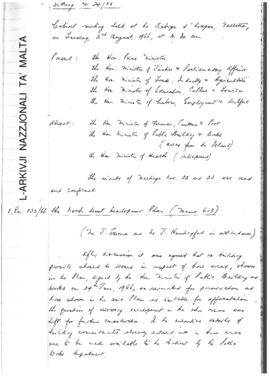 Meeting No 24/66
Cabinet meeting held at the Auberge d'Aragon, Valletta,
on Tuesday, 2nd August, 1966, at 9.30 am
Present: The Hon. Prime Minister
The Hon. Minister of Justice & Parliamentary Affairs
The Hon. Minister of Trade, Industry & Agriculture
The Hon. Minister of Education, Culture & Tourism
The Hon. Minister of Labour, Employment & Welfare
Absent: The Hon. Minister of Finance, Customs & Port
The Hon. Minister of Public Building & Works
(away from the Island)
The Hon. Minister of Health (indisposed)
The minutes of meetings Nos. 22 and 23 were read
and confirmed.
The North West Development Plan (Memo 613)
After discussion it was agreed that no building
permits should be issued in respect of those areas, shown
in the Plan, signed by the Hon. Minister of Public Building and
Works on 29th June, 1966, as earmarked for preservation and
those shown in the said Plan as suitable for afforestation.
The question of allowing development in the other areas was
left for further consideration. In the meantime details of
building commitments already entered into in these areas
are to be made available to the Cabinet by the Public
Works Department.
L-ARKIVJI NAZZJONALI TA' MALTA